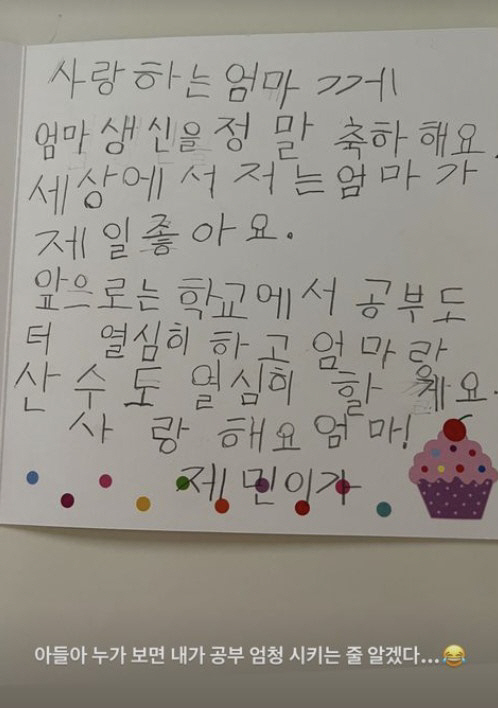 사랑하는 엄마 께
엄마 생신을 정 말 축하 해요.
세상에 서 저 는 엄마 가
제 일 좋 아 요.
앞으로는 학교에서 공부도
터 열심히 하고 엄마 라
산 수 도 열심히 할 게요.
사 랑 해요 엄 마!
제 민이가
아들아 누가 보면 내가 공부 엄청 시키는 줄 알겠다...😂